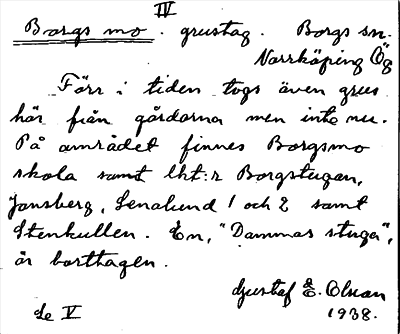 IV
Borgs mo. grustag. Borgs sn.
Norrköping Ög
Förr i tiden togs även grus
här från gårdarna men inte nu.
På området finnes Borgsmo
skola samt lht:r Borgstugan,
Jonsberg, Lenalund 1 och 2 samt
Stenkullen. En, "Dammas stuga",
är borttagen.
Gustaf E. Olson
1938.
Se V